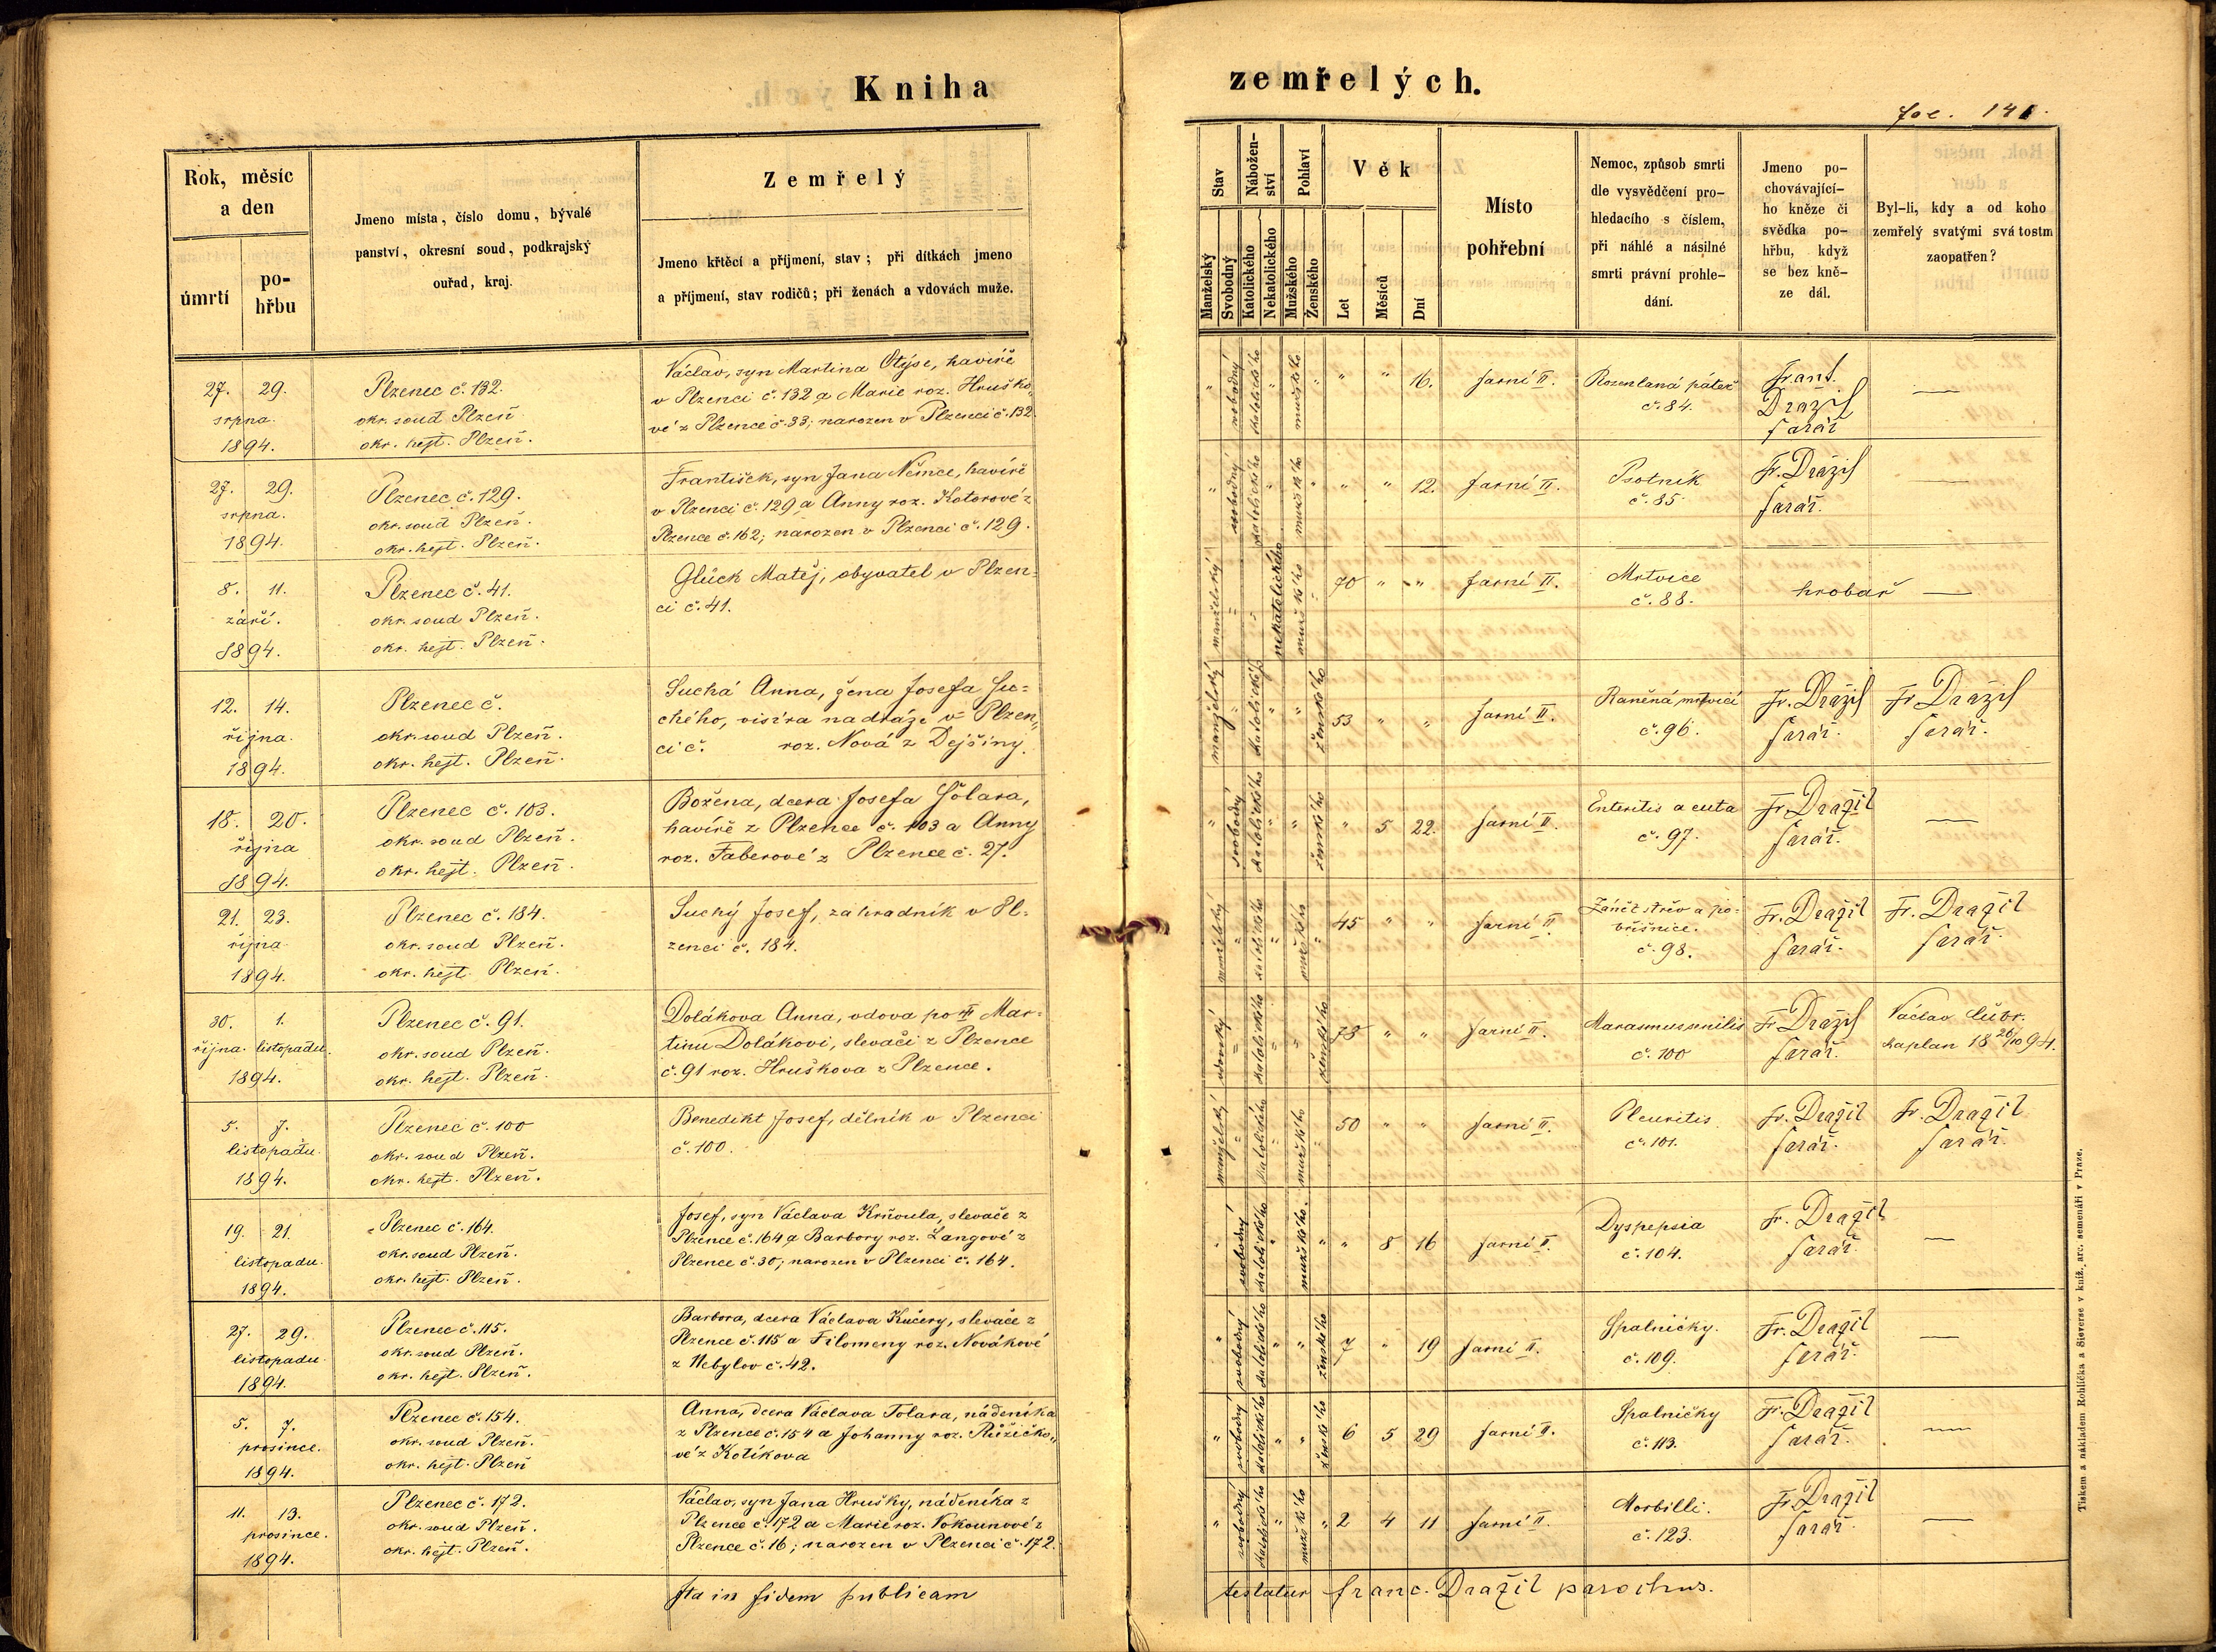 Kniha
zemřelých.
fol. 141.
Rok, měsíc
a den
úmrtí
po-
hřbu
Jmeno místa, číslo domu, bývalé
panství, okresní soud, podkrajský
ouřad, kraj.
Zemřelý
Jmeno křtěcí a příjmení, stav; při dítkách jmeno
a příjmení, stav rodičů; při ženách a vdovách muže.
Stav
Nábožen-
ství
Pohlaví
Věk
Manželský
Svobodný
Katolického
Nekatolického
Mužského
Ženského
Let
Měsíců
Dní
Místo
pohřební
Nemoc, způsob smrti
dle vysvědčení pro-
hledacího s číslem,
při náhlé a násilné
smrti právní prohle-
dání.
Jmeno po-
chovávající-
ho kněze či
svědka po-
hřbu, když
se bez kně-
ze dál.
Byl-li, kdy a od koho
zemřelý svatými svátostm
zaopatřen?
27. 29.
srpna.
1894.
Plzenec č. 132.
okr. soud Plzeň.
okr. hejt. Plzeň.
Václav, syn Martina Otýse, havíře
v Plzenci č. 132 a Marie roz. Hruško-
vé z Plzence č. 33; narozen v Plzenci č. 132.
" svobodný katolického " mužského " " " 16. farní II.
Rozenlaná páteř
č. 84.
Frant.
Dražil
farář
—
27. 29.
srpna.
1894.
Plzenec č. 129.
okr. soud Plzeň.
okr. hejt. Plzeň.
František, syn Jana Němce, havíře
v Plzenci č. 129 a Anny roz. Kotorové z
Plzence č. 162; narozen v Plzenci č. 129.
" svobodný katolického " mužského " " " 12. farní II.
Psotník
č. 85.
Fr. Dražil
farář.
—
8. 11.
září.
1894.
Plzenec č. 41.
okr. soud Plzeň.
okr. hejt. Plzeň.
Glück Matěj, obyvatel v Plzen-
ci č. 41.
manželský " " nekatolického mužského " 70 " " farní II.
Mrtvice
č. 88.
hrobař —
12. 14.
října.
1894.
Plzenec č.
okr. soud Plzeň.
okr. hejt. Plzeň.
Suchá Anna, žena Josefa Su-
chého, visíra na dráze v Plzen-
ci č. roz. Nová z Dejšiny.
manželský " katolického " " ženského 53 " " farní II.
Raněná mrtvicí
č. 96.
Fr. Dražil
farář.
Fr. Dražil
farář.
18. 20.
října
1894.
Plzenec č. 103.
okr. soud Plzeň.
okr. hejt. Plzeň.
Božena, dcera Josefa Šolara,
havíře z Plzence č. 103 a Anny
roz. Faberové z Plzence č. 27.
" svobodný katolického " " ženského " 5 22. farní II.
Enteritis acuta
č. 97.
Fr. Dražil
farář.
—
21. 23.
října
1894.
Plzenec č. 184.
okr. soud Plzeň.
okr. hejt. Plzeň.
Suchý Josef, zahradník v Pl-
zenci č. 184.
manželský " katolického " mužského " 45 " " farní II.
Zánět střev a po-
břišnice.
č. 98.
Fr. Dražil
farář.
Fr. Dražil
farář.
30. 1.
října. listopadu.
1894.
Plzenec č. 91.
okr. soud Plzeň.
okr. hejt. Plzeň.
Dolákova Anna, vdova po Mar-
tinu Dolákovi, slevači z Plzence
č. 91 roz. Hruškova z Plzence.
vdovský " katolického " " ženského 78 " " farní II.
Marasmus senilis
č. 100
Fr. Dražil
farář.
Václav Cubr.
kaplan 18 26/10 94.
5. 7.
listopadu.
1894.
Plzenec č. 100
okr. soud Plzeň.
okr. hejt. Plzeň.
Benedikt Josef, dělník v Plzenci
č. 100.
manželský " katolického " mužského " 50 " " farní II.
Pleuritis
č. 101.
Fr. Dražil
farář.
Fr. Dražil
farář.
19. 21.
listopadu.
1894.
Plzenec č. 164.
okr. soud Plzeň.
okr. hejt. Plzeň.
Josef, syn Václava Krňoula, slevače z
Plzence č. 164 a Barbory roz. Langové z
Plzence č. 30; narozen v Plzenci č. 164.
" svobodný katolického " mužského. " " 8 16 farní II.
Dyspepsia
č. 104.
Fr. Dražil
farář.
—
27. 29.
listopadu.
1894.
Plzenec č. 115.
okr. soud Plzeň.
okr. hejt. Plzeň.
Barbora, dcera Václava Kučery, slevače z
Plzence č. 115 a Filomeny roz. Novákové
z Nebylov č. 42.
" svobodný katolického " " ženského 7 " 19 farní II.
Spalničky.
č. 109.
Fr. Dražil
farář.
—
5. 7.
prosince.
1894.
Plzenec č. 154.
okr. soud Plzeň.
okr. hejt. Plzeň
Anna, dcera Václava Tolara, nádeníka
z Plzence č. 154 a Johanny roz. Růžičko-
vé z Kotíkova
" svobodný katolického " " ženského 6 5 29 farní II.
Spalničky
č. 113.
Fr. Dražil
farář.
—
11. 13.
prosince.
1894.
Plzenec č. 172.
okr. soud Plzeň.
okr. hejt. Plzeň.
Václav, syn Jana Hrušky, nádeníka z
Plzence č. 172 a Marie roz. Vokounové z
Plzence č. 16; narozen v Plzenci č. 172.
" svobodný katolického " mužského " 2 4 11 farní II.
Morbilli.
č. 123.
Fr. Dražil
farář.
—
Ita in fidem publicam
testatur Franc. Dražil parochus.
Tiskem a nákladem Rohlíčka a Sieverse v kníž. arc. semenáři v Praze.